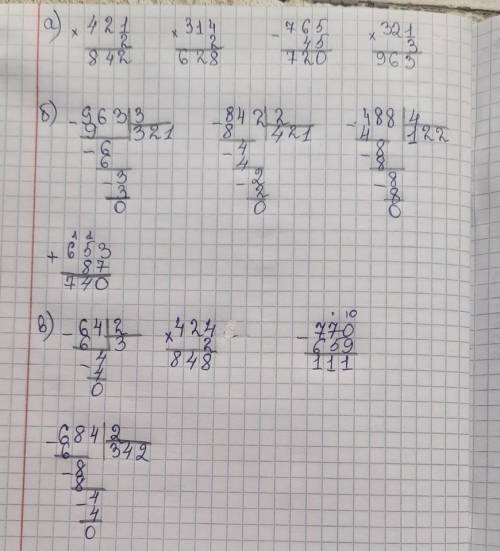 а) × 421 × 314 - 765 × 321
2 2 45 3
842 628 720 963
б) - 963 | 3 - 842 | 2 - 488 | 4
9 | 321 8 | 421 4 | 122
- 6 - 4 - 8
6 4 8
- 3 - 2 - 8
3 2 8
0 0 0
1 1
+ 653
87
740
в) - 64 | 2 × 424 - 770
6 | 3 2 659
- 4 848 111
4
0
- 684 | 2
6 | 342
- 8
8
- 4
4
0